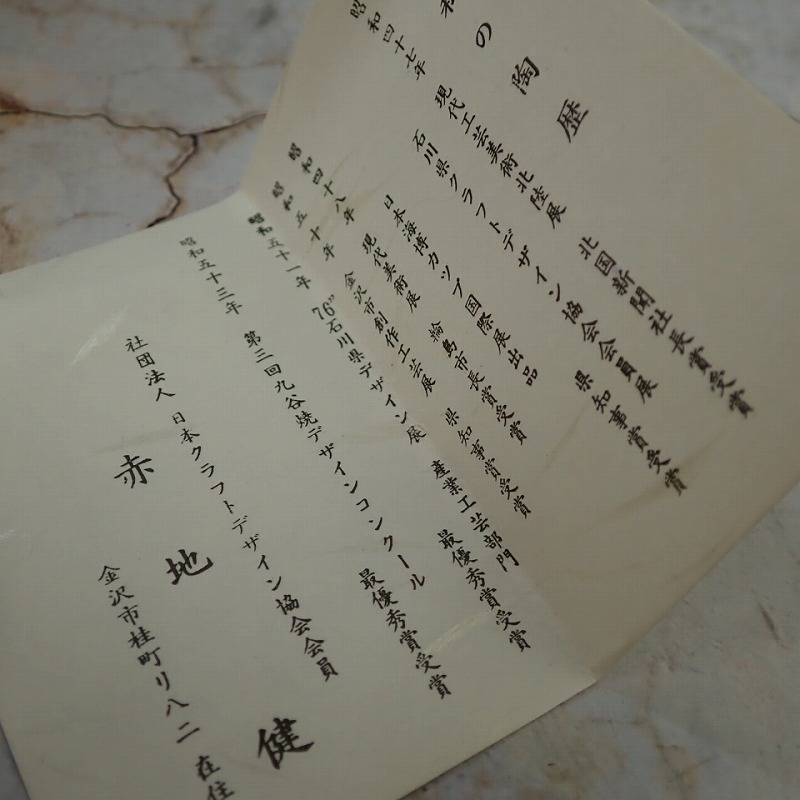 私の陶歴
昭和四十七年 現代工芸美術北陸展 北国新聞社長賞受賞
石川県クラフトデザイン協会会員展 県知事賞受賞
日本海博カップ国際展出品
昭和四十八年 現代美術展 輪島市長賞受賞
昭和五十年 金沢市創作工芸展 県知事賞受賞
昭和五十一年 76”石川県デザイン展 産業工芸部門 最優秀賞受賞
昭和五十三年 第三回九谷焼デザインコンクール 最優秀賞受賞
社団法人 日本クラフトデザイン協会会員
赤地健
金沢市桂町リ八二 在住